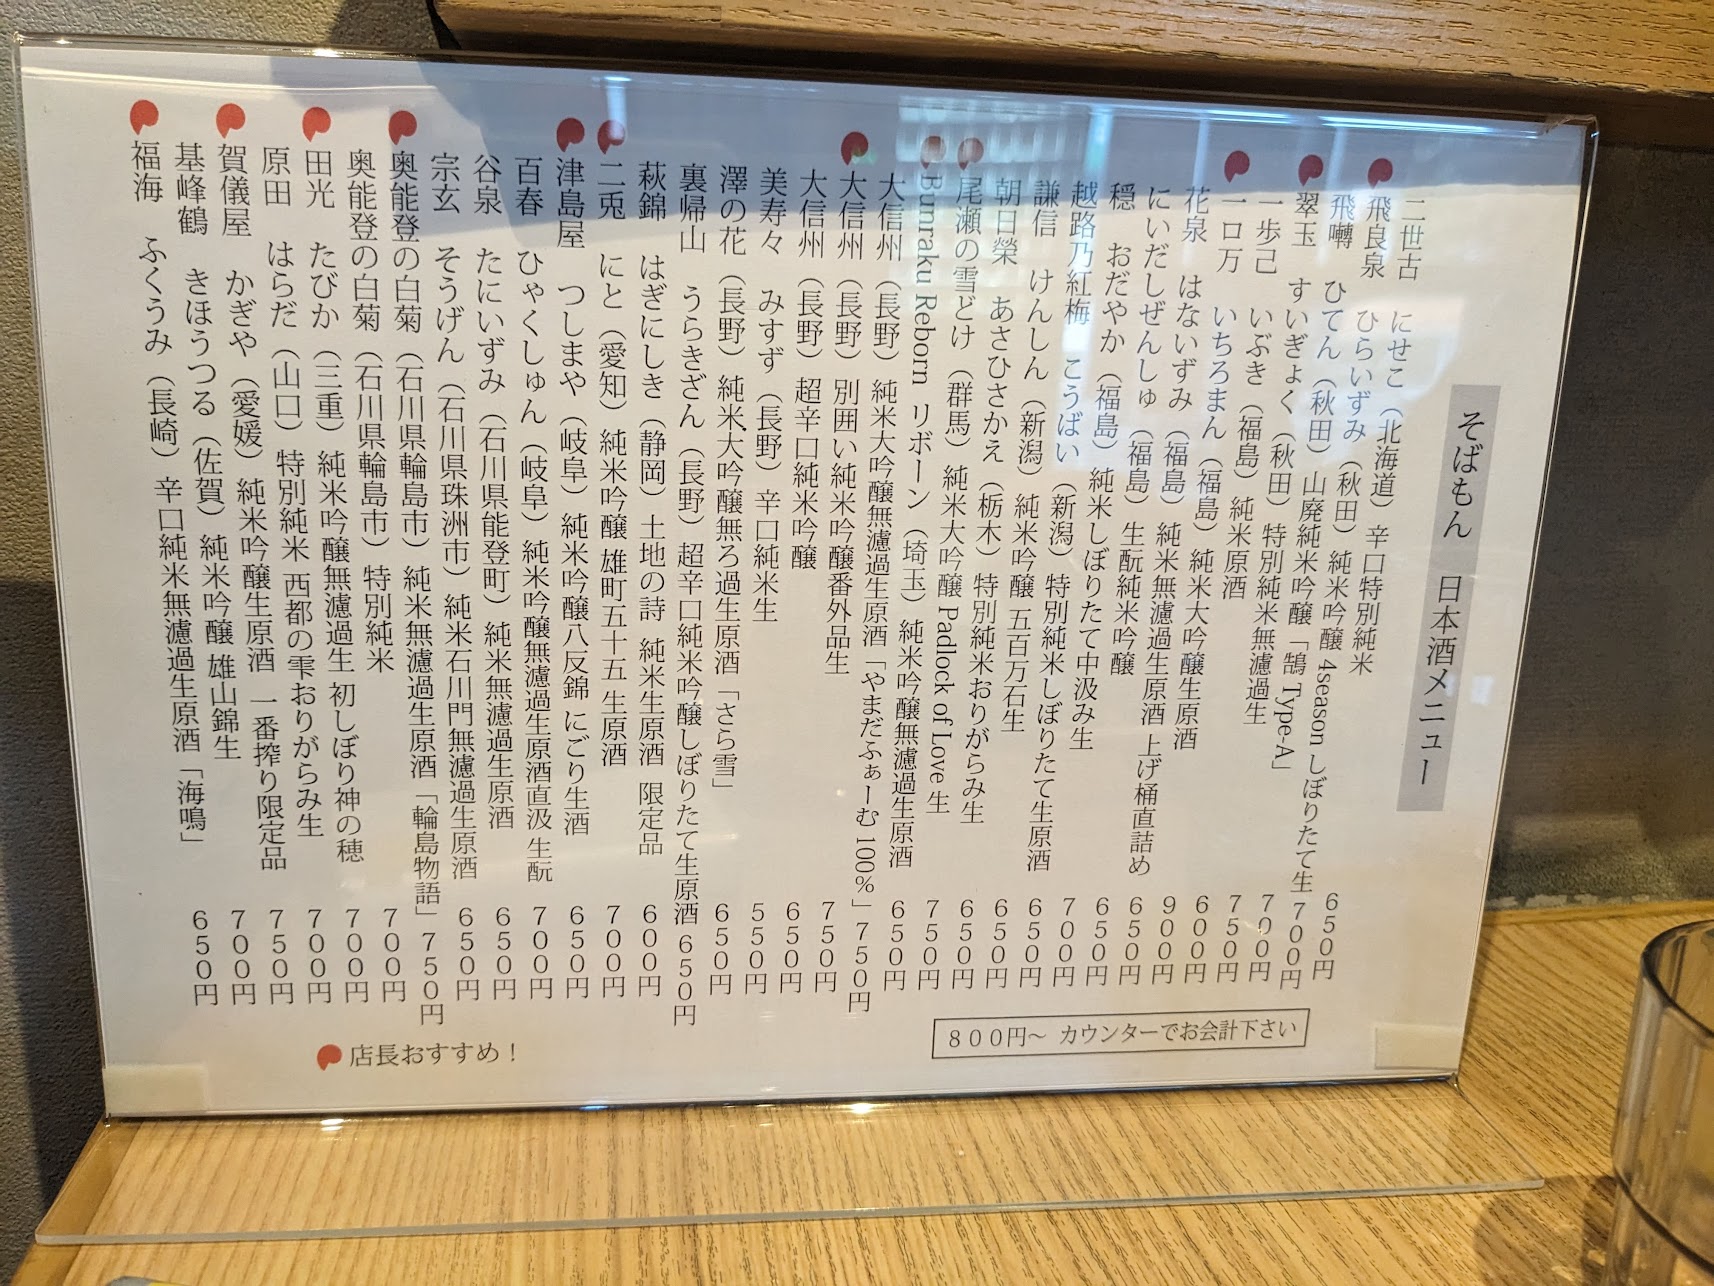 そばもん 日本酒メニュー
二世古 にせこ（北海道）辛口特別純米 650円
飛良泉 ひらいずみ（秋田）純米吟醸 4season しぼりたて生 700円
飛囀 ひてん（秋田）山廃純米吟醸「鵠 Type-A」 700円
翠玉 すいぎょく（秋田）特別純米無濾過生 750円
一歩己 いぶき（福島）純米原酒 600円
一口万 いちろまん（福島）純米大吟醸生原酒 900円
花泉 はないずみ（福島）純米無濾過生原酒 上げ桶直詰め 650円
にいだしぜんしゅ（福島）生酛純米吟醸 650円
穏 おだやか（福島）純米しぼりたて中汲み生 700円
越路乃紅梅 こうばい（新潟）特別純米しぼりたて生原酒 650円
謙信 けんしん（新潟）純米吟醸 五百万石生 650円
朝日榮 あさひさかえ（栃木）特別純米おりがらみ生 650円
尾瀬の雪どけ（群馬）純米大吟醸 Padlock of Love 生 750円
Bunraku Reborn リボーン（埼玉）純米吟醸無濾過生原酒 650円
大信州（長野）純米大吟醸無濾過生原酒「やまだふぁーむ 100%」 750円
大信州（長野）別囲い純米吟醸番外品生 750円
大信州（長野）超辛口純米吟醸 650円
美寿々 みすず（長野）辛口純米生 550円
澤の花（長野）純米大吟醸無ろ過生原酒「さら雪」 650円
裏帰山 うらきざん（長野）超辛口純米吟醸しぼりたて生原酒 650円
萩錦 はぎにしき（静岡）土地の詩 純米生原酒 限定品 600円
二兎 にと（愛知）純米吟醸 雄町五十五 生原酒 700円
津島屋 つしまや（岐阜）純米吟醸八反錦 にごり生酒 650円
百春 ひゃくしゅん（岐阜）純米吟醸無濾過生原酒直汲 生酛 700円
谷泉 たにいずみ（石川県能登町）純米無濾過生原酒 650円
宗玄 そうげん（石川県珠洲市）純米石川門無濾過生原酒 650円
奥能登の白菊（石川県輪島市）純米無濾過生原酒「輪島物語」 750円
奥能登の白菊（石川県輪島市）特別純米 700円
田光 たびか（三重）純米吟醸無濾過生 初しぼり神の穂 700円
原田 はらだ（山口）特別純米 西都の雫おりがらみ生 700円
賀儀屋 かぎや（愛媛）純米吟醸生原酒 一番搾り限定品 750円
基峰鶴 きほうつる（佐賀）純米吟醸 雄山錦生 700円
福海 ふくうみ（長崎）辛口純米無濾過生原酒「海鳴」 650円
800円～ カウンターでお会計下さい
店長おすすめ！